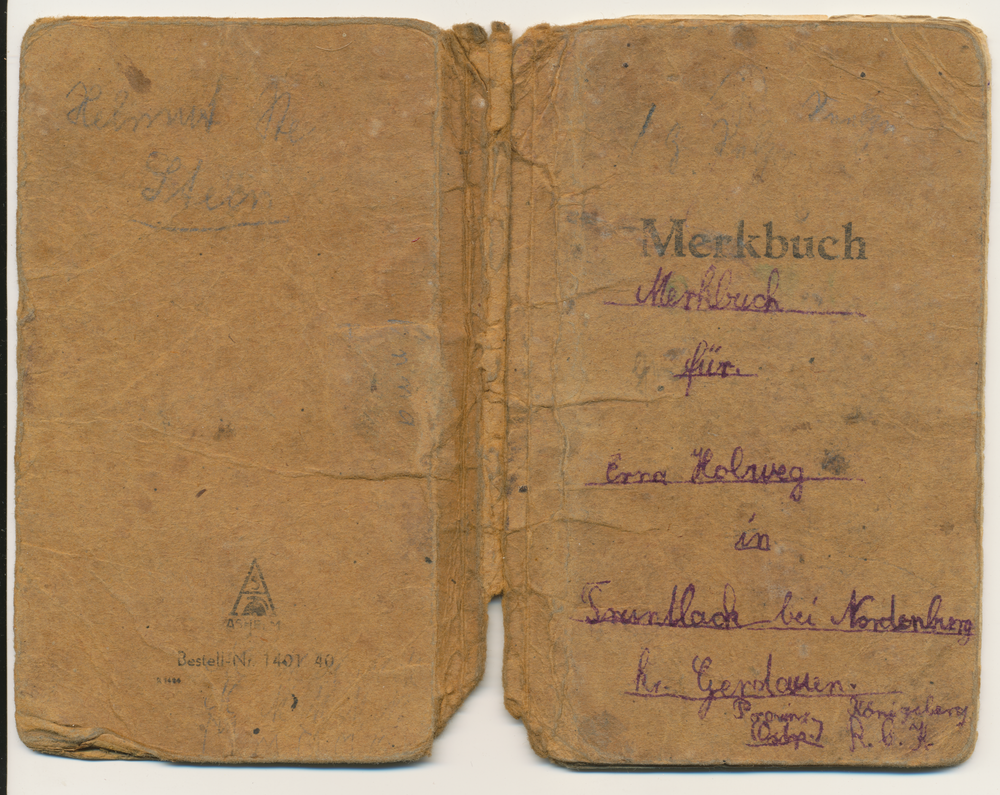 Helmut
Stein.
Bestell-Nr. 1401/40
Merkbuch
Merkbuch
für.
Erna Holweg
in
Truntlack bei Nordenburg
Kr. Gerdauen.
Provinz Königsberg
Ostp.